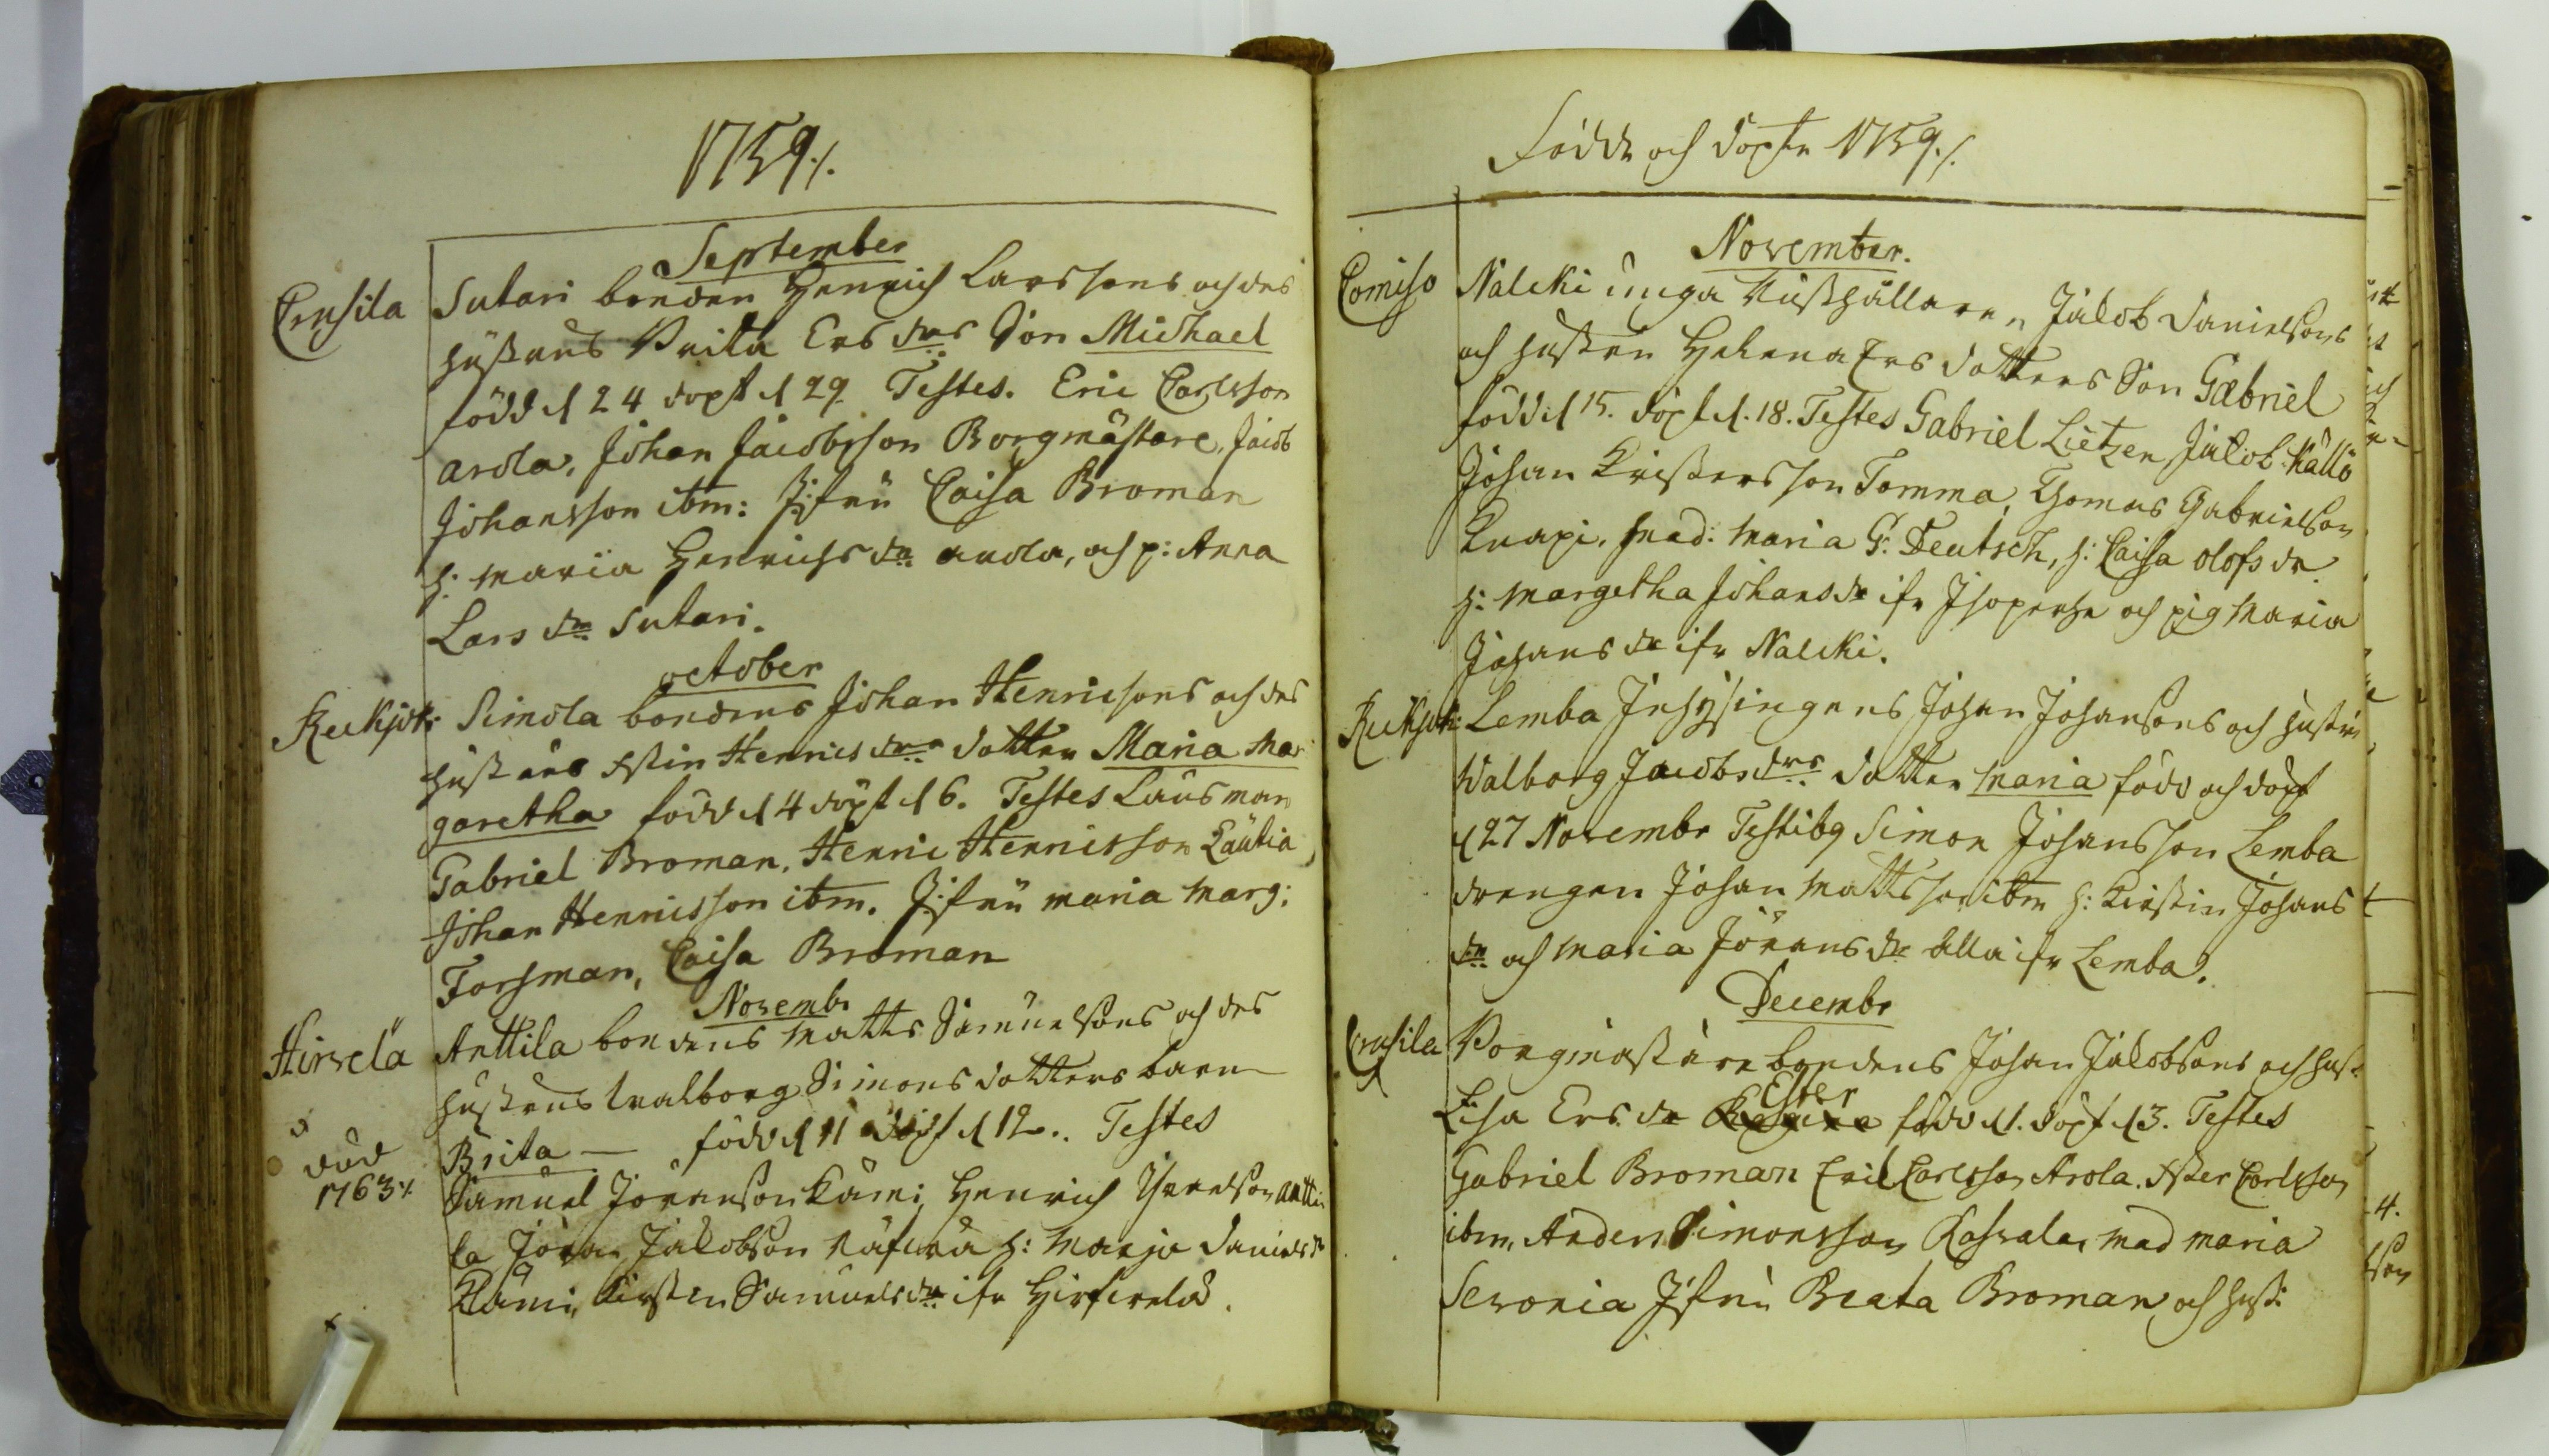 1759./.
September
Crusila Sutari bonden Henrich Larssons och des
hustrus Brita Ers drs Son Michael
född d 24 döpt d 29 Testes. Eric Carlsson
arola, Johan Jacobsson Borgmästare, Jacob
Johansson ibm: Jfru Caisa Broman
h: Maria Henrichs dr arola, och p: Anna
Lars dr Sutari.
october
Simola bondens Johan Henricsons och des
hustrus Henrics drs dotter Maria Mar
garetha född d 4 döpt d 6. Testes Länsman
Gabriel Broman, Henric Henricsson Lautia
Johan Henricsson ibm. Jfru Maria Marg:
Forsman, Caisa Broman
Novembr
Hirvelä Anttila bondens Matts Samuelsons och des
hustrus Walborg Simons dotters barn
Brita — född d 11 döpt d 12.. Testes
död
1763./.
Samuel Jöransson Kämi, Henrich antti
la Jöran Jacobson h: Marja Daniels dr
Kämi, Kirstin Samuels dr ifr Hirfvelä.
Födde och Döpte 1759./.
November.
Comiso Nalcki unga Rusthållaren Jacob Danielsons
och hustrun Helena Ers dotters Son Gabriel
född d 15. döpt d. 18. Testes Gabriel Lietzen, Jacob Källö
Johan Kristersson Tomma, Thomas Gabrielson
Knapi, Mad: Maria G: Deutsch, h: Caisa olofs dr
h: Margetha Johans dr ifr och pig Maria
Johans dr ifr Nalcki.
Lemba Inhysingens Johan Johansons och hustru
Walborg Jacobs drs dotter Maria född och döpt
d 27 Novembr Testibg Simon Johansson Lemba
drengen Johan Mattsson ibm h: Kirstin Johans
dr och Maria Jörans dr alla ifr Lemba.
Decembr
Crusila Borgmästare bondens Johan Jacobsons och hust.
Lisa Ers. dr Ester född d 1. döpt d 3. Testes
Gabriel Broman Eric Carlsson Arola. Carlsson
ibm, Anders Simonsson Mad Maria
Jfru Beata Broman och hust: